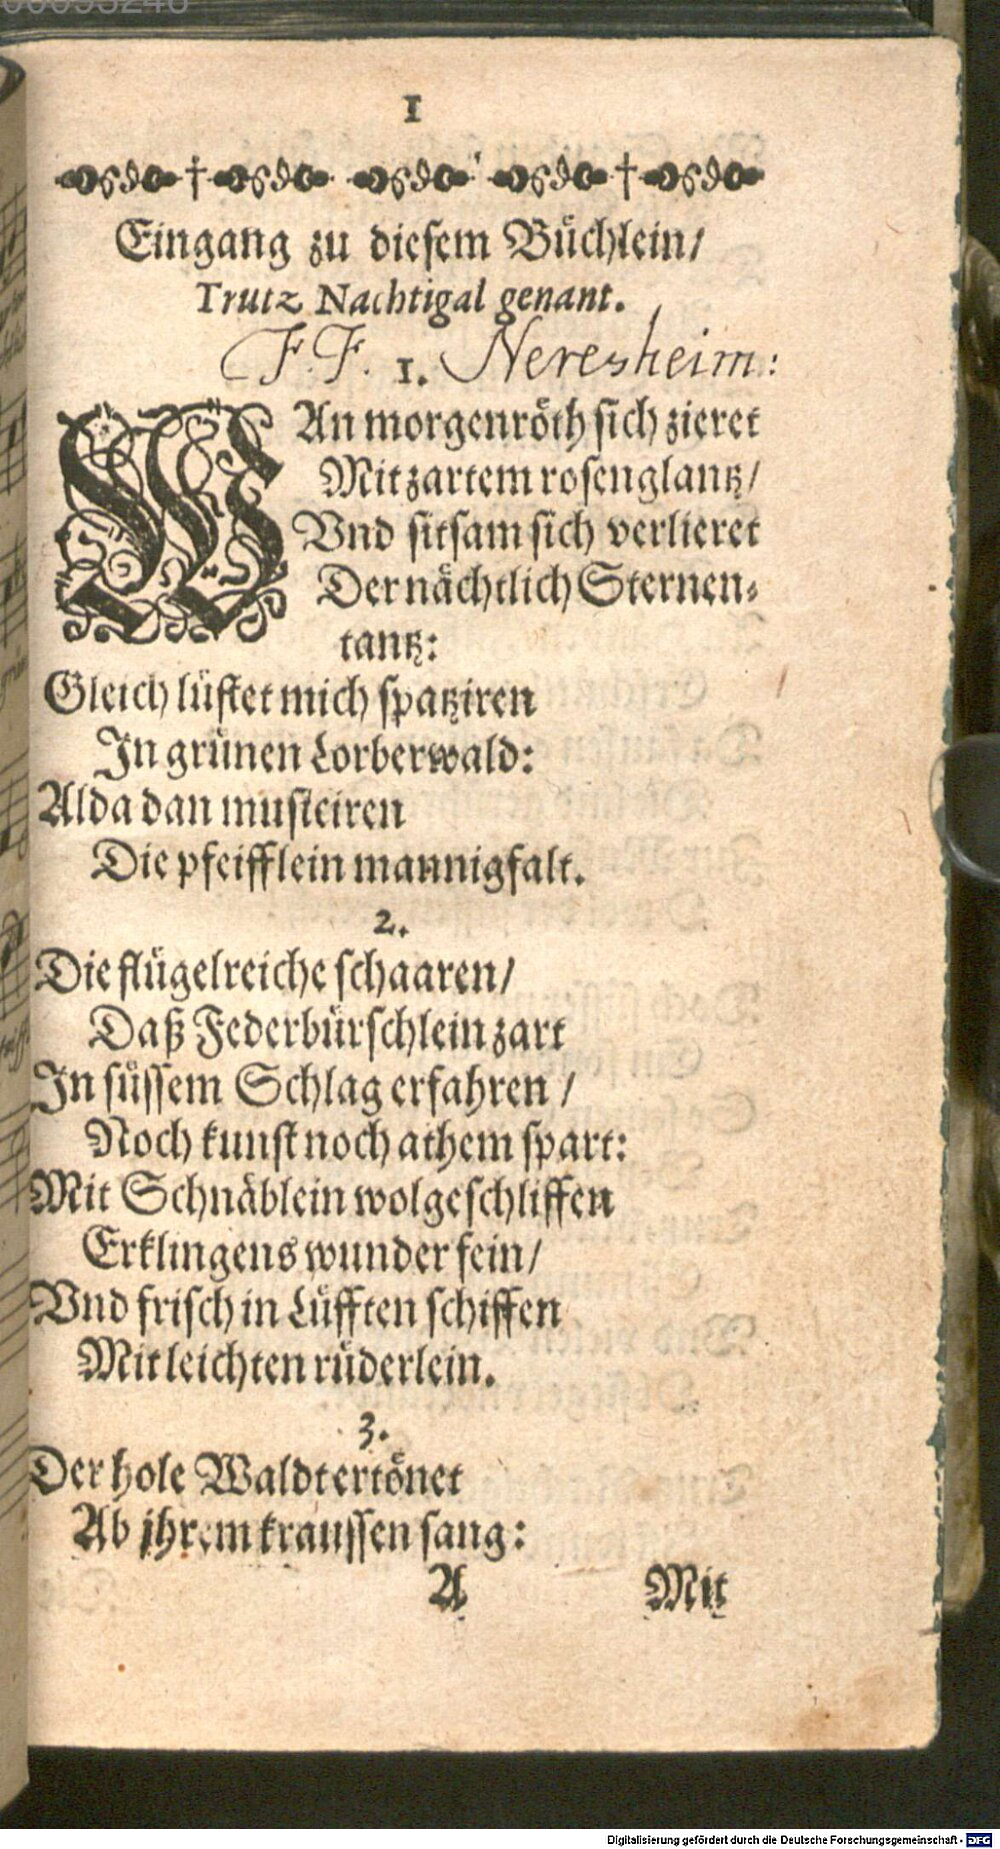 00093246
1
Eingang zu diesem Büchlein/
Trutz Nachtigal genant.
F. F. 1. Neresheim:
WAn morgenröth sich zieret
Mit zartem rosenglantz/
Vnd sitsam sich verlieret
Der nächtlich Sternen-
tantz:
Gleich lüstet mich spatziren
In grünen Lorberwald:
Alda dan musiciren
Die pfeifflein mannigfalt.
2.
Die flügelreiche schaaren/
Daß Federbürschlein zart
In süssem Schlag erfahren /
Noch kunst noch athem spart:
Mit Schnäblein wolgeschliffen
Erklingens wunder fein/
Vnd frisch in Lüfften schiffen
Mit leichten rüderlein.
3.
Der hole Waldt ertönet
Ab jhrem kraussen sang:
A Mit
Digitalisierung gefördert durch die Deutsche Forschungsgemeinschaft - DFG